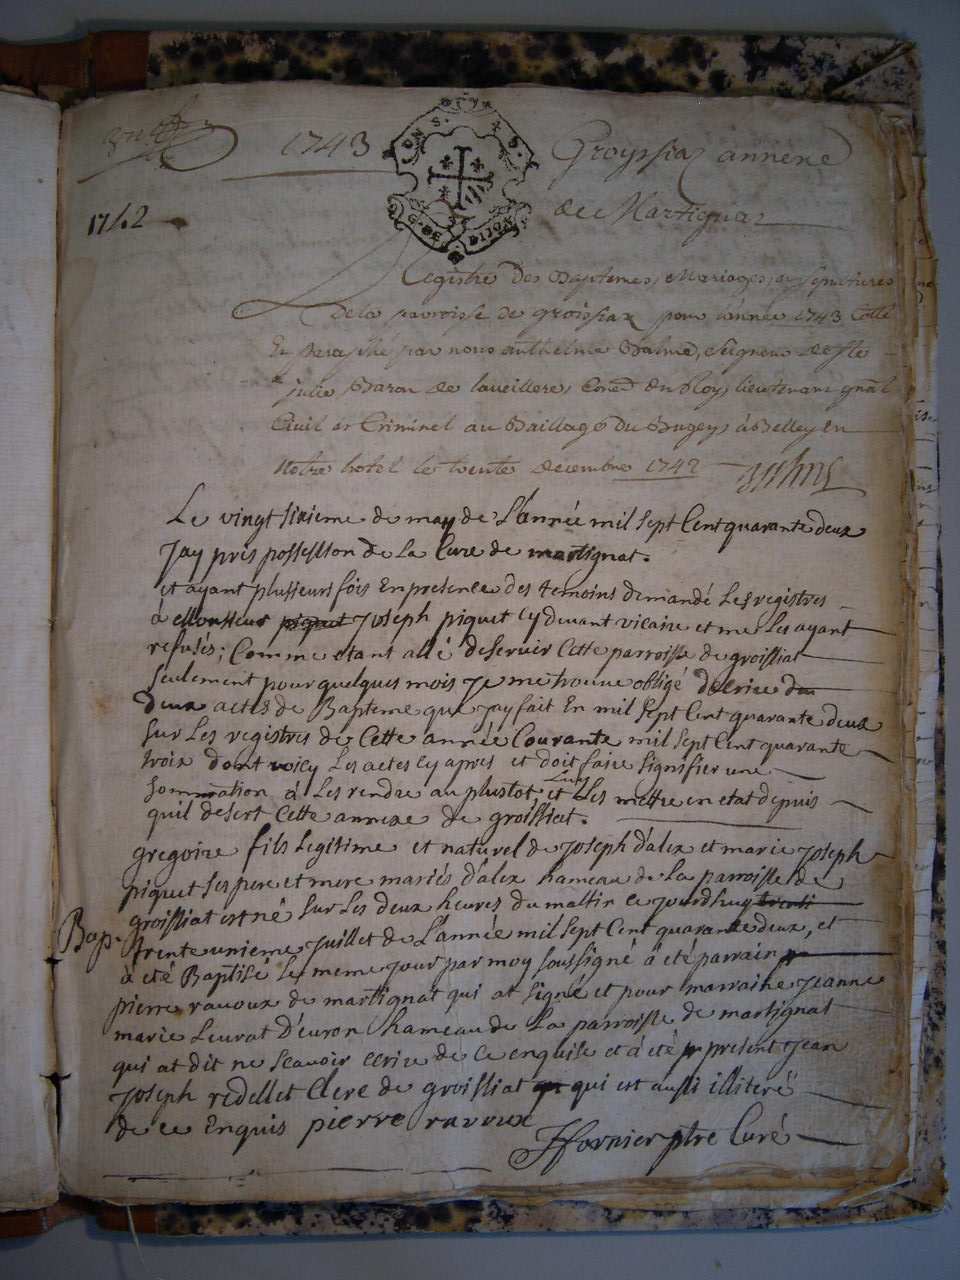 1743
Groyssia annexe
de Martignaz
1742
Registre des Baptemes, Mariages, et sepultures
de la parroisse de groissiaz pour l'année 1743 Cotté
Et Paraffé par nous anthelme Balme, Seigneur de Ste
julie Baron de laveilleres, Cons du Roy, lieutenant gnal
Civil et Criminel au Bailliage du Bugey, à Belley En
Notre hotel le trente decembre 1742
Le vingt sixieme de may de L'année mil sept Cent quarante deux
Jay pris possession de La Cure de martignat.
et ayant plusseurs fois En presence des temoins demandé Les registres
à Joseph piquet Cy devant vicaire et me Les ayant
refusés; Comme etant allé deservir Cette parroisse de groissiat
seulement pour quelques mois Je me trouve obligé decrire
deux actes de Bapteme que Jay fait En mil sept Cent quarante deux
sur Les registres de Cette année Courante mil sept Cent quarante
trois dont voicy Les actes Cy apres et doit faire signifier une
sommation à Les rendre au plustot et Les mettre en etat depuis
quil desert Cette annexe de groissiat.
gregoire fils Legitime et naturel de Joseph d'alex et marie Joseph
piquet ses pere et mere mariés d'alex hameau de La parroisse de
groissiat est né sur Les deux heures du mattin ce Jourdhuy
Bap. trente unieme Juillet de L'année mil sept Cent quarante deux, et
à eté Baptisé Le meme Jour par moy soussigné à été parrain
pierre ravoux de martignat qui at signé et pour marraine Jeanne
marie Levrat D'evron hameau de La parroisse de martignat
qui at dit ne scavoir ecrire de ce enquise et à été present Jean
Joseph redellet Clerc de groissiat qui est aussi illiteré
de ce Enquis pierre ravoux
Jffornier ptre Curé